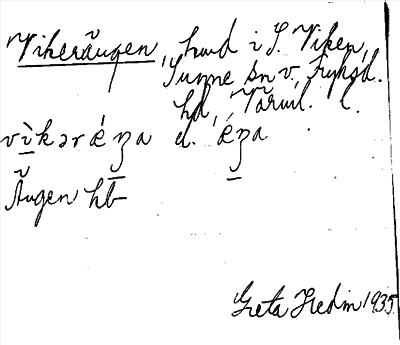 Vikeräugen, hmd i S. Viken,
Sunne sn v, Fryksd.
hd, Värml. l.
vìkərǽŋa el. ǽŋa
Äugen hb
Greta Hedin 1935.